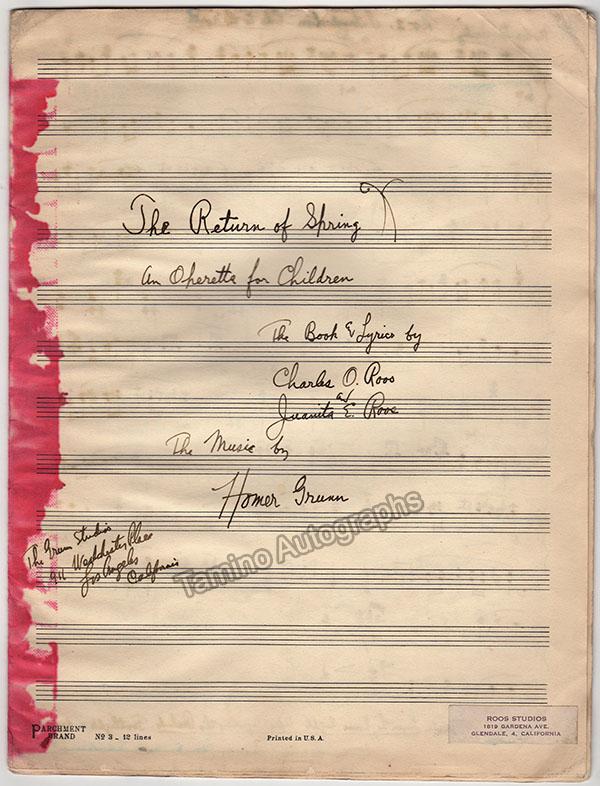 The Return of Spring
An Operetta for Children
The Book & Lyrics by
Charles O. Roos
and
Juanita E. Roos
The Music by
Homer Grunn
The Grunn Studios
911 Westchester Place
Los Angeles
California
Tamino Autographs
PARCHMENT BRAND Nº 3 - 12 lines Printed in U.S.A.
ROOS STUDIOS
1619 GARDENA AVE.
GLENDALE, 4, CALIFORNIA